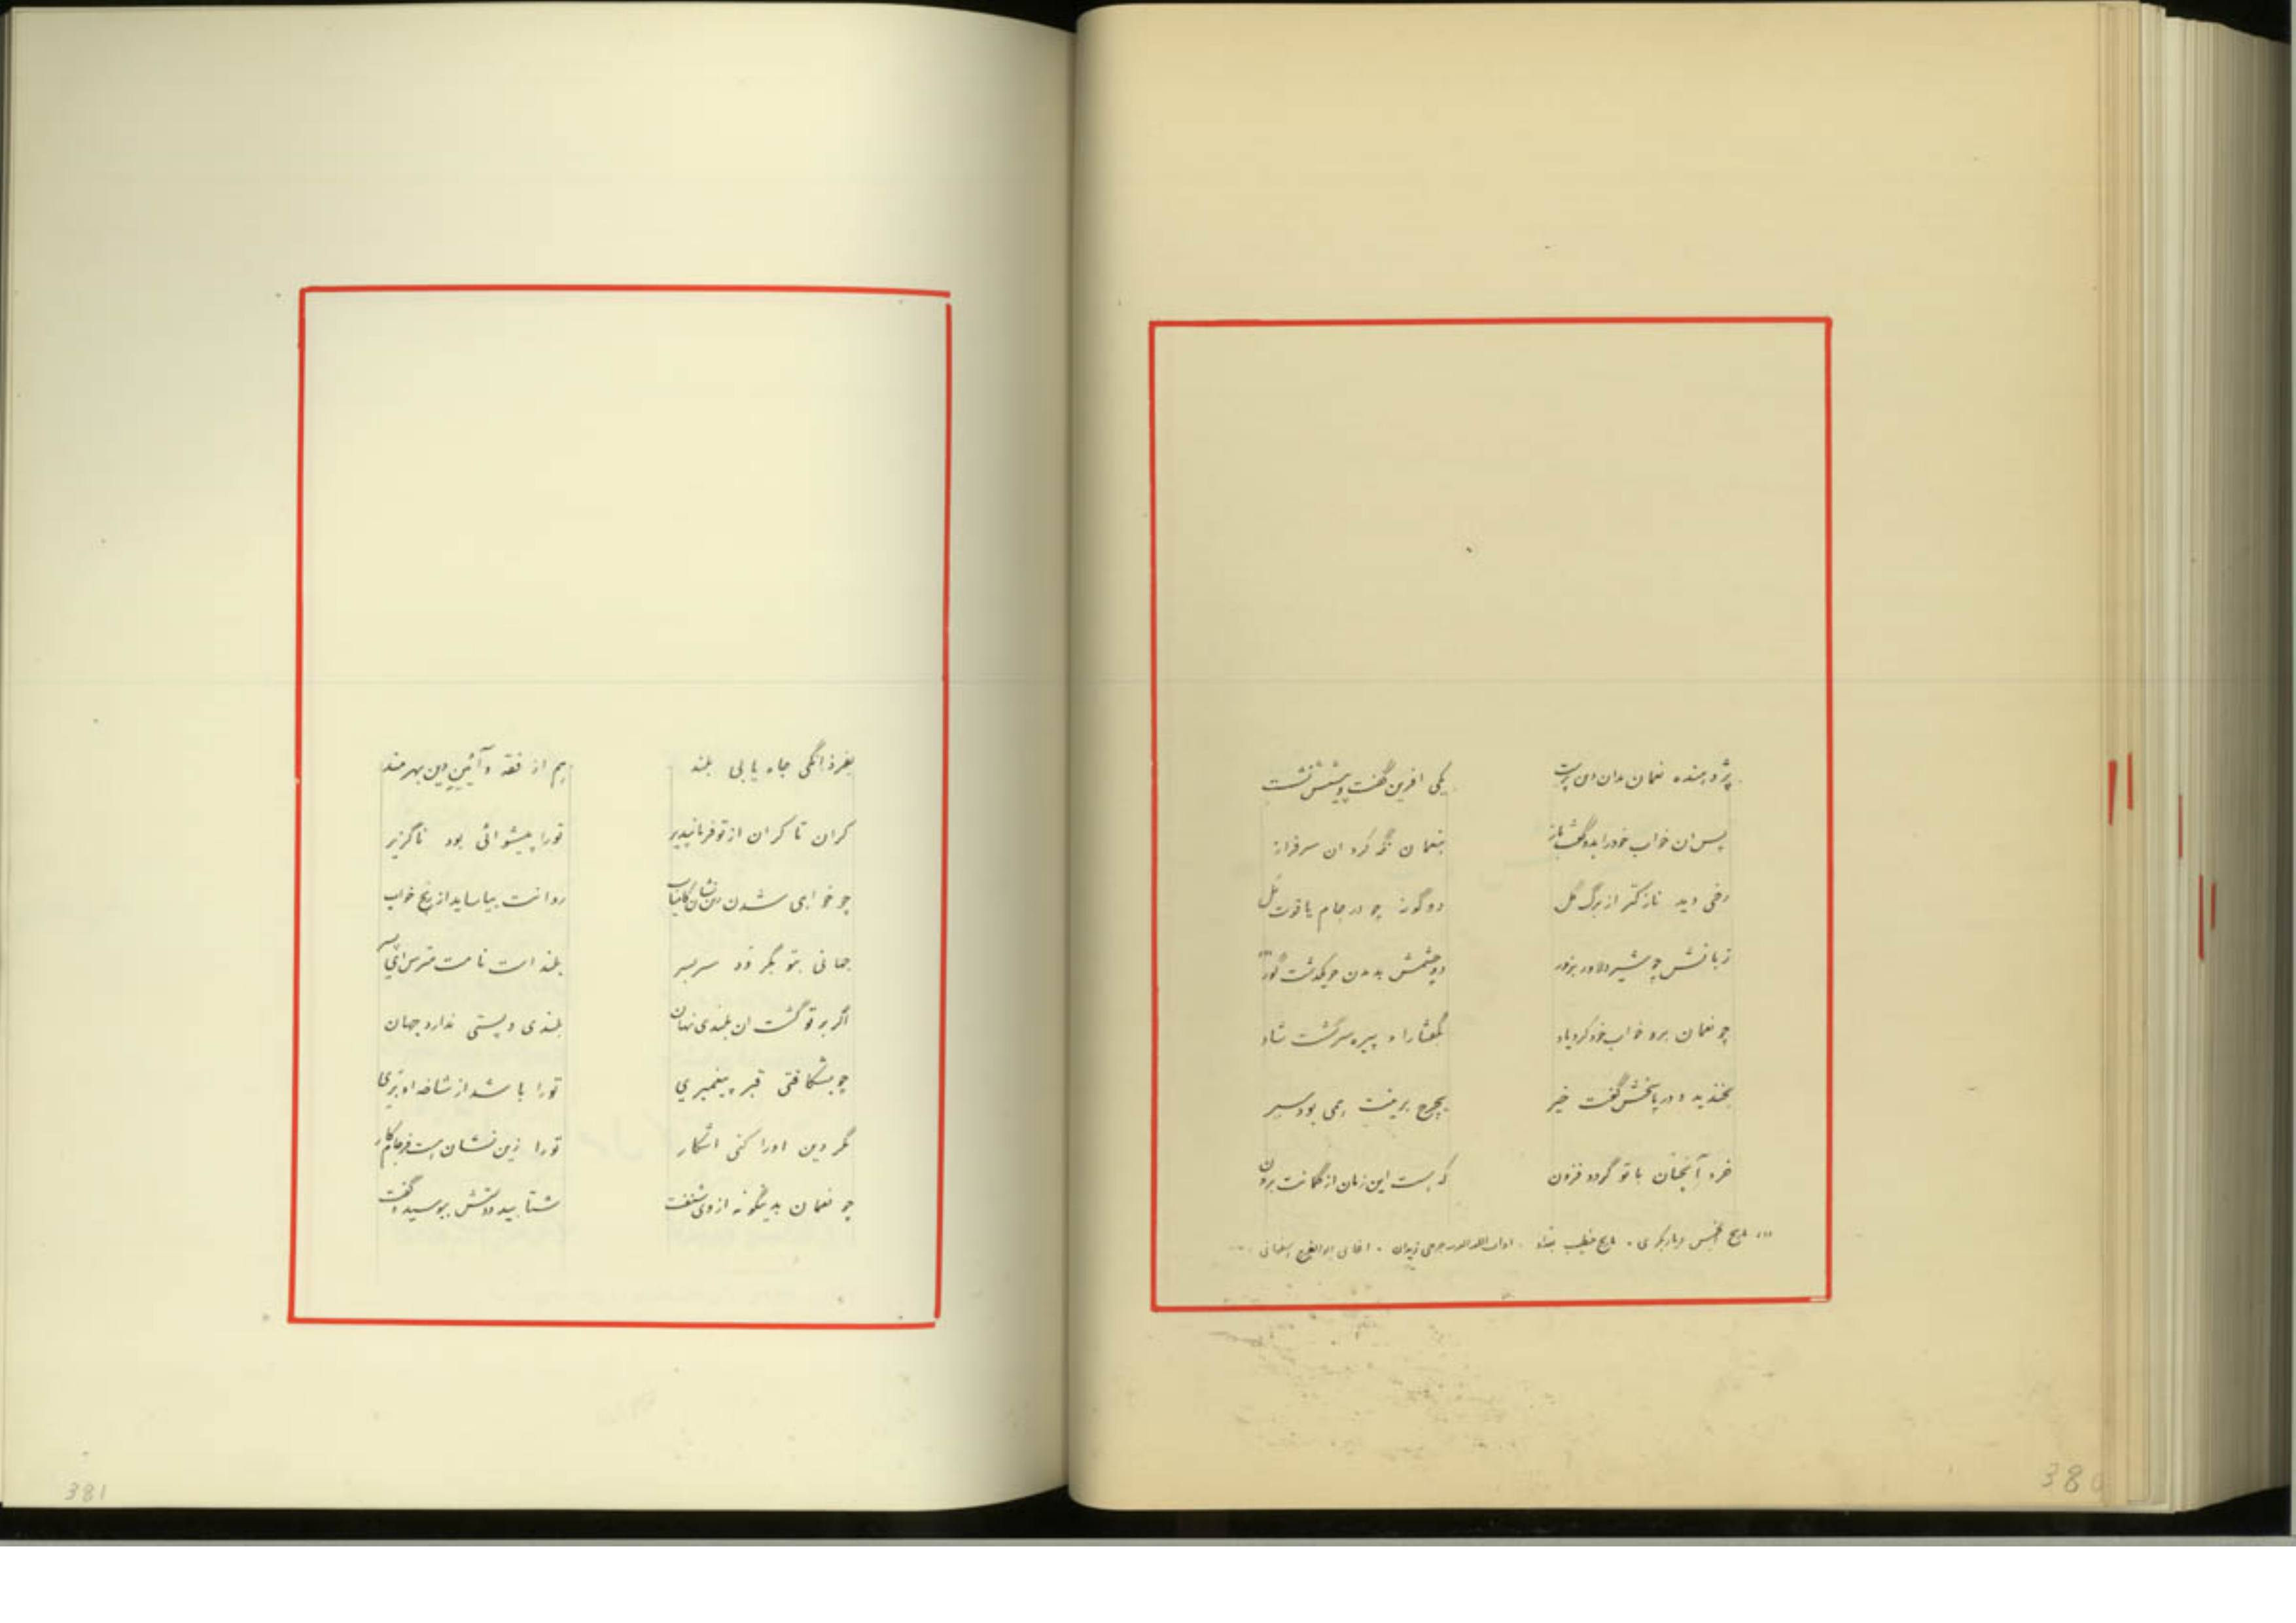 پژوهنده نعمان بدان ره پرست یکی افرین گفت و پیشش نشست
پس ان خواب خود را بدو گفت باز بنعمان نگه کرد ان سرفراز
رخی دید نازکتر از برگ گل دو گونه چو در جام یاقوت مل
زبانش چو شیر دلاور بزور دو چشمش بدیدن چو یکدشت گور
چو نعمان برو خواب خود کرد یاد بگفتار او پیره سر گشت شاد
بخندید و در پاسخش گفت خیر بچرخ برینت همی بود سیر
خرد آنچنان با تو گردد فزون که هست این زمان از گمانت برون
... تاریخ الخمیس دیاربکری . تاریخ خطیب بغداد . اداب اللغه جرجی زیدان . اغانی ابوالفرج اصفهانی
380
بفرزانگی جاه یابی بلند هم از فقه و آئین دین بهرمند
کران تا کران از تو فرمانپذیر تو را پیشوائی بود ناگزیر
چو خواهی شدن زین نشان کامیاب روانت بیاساید از رنج خواب
جهانی بتو بگرود سربسر بلند است نامت مترس ای پسر
اگر بر تو گشت ان بلندی نهان بلندی و پستی ندارد جهان
چو بشکافتی قبر پیغمبری تو را باشد از شاخه او بری
مگر دین او را کنی اشکار تو را زین نشان هست فرجام کار
چو نعمان بدینگونه از وی شنفت شتابید و دستش ببوسید و گفت
381